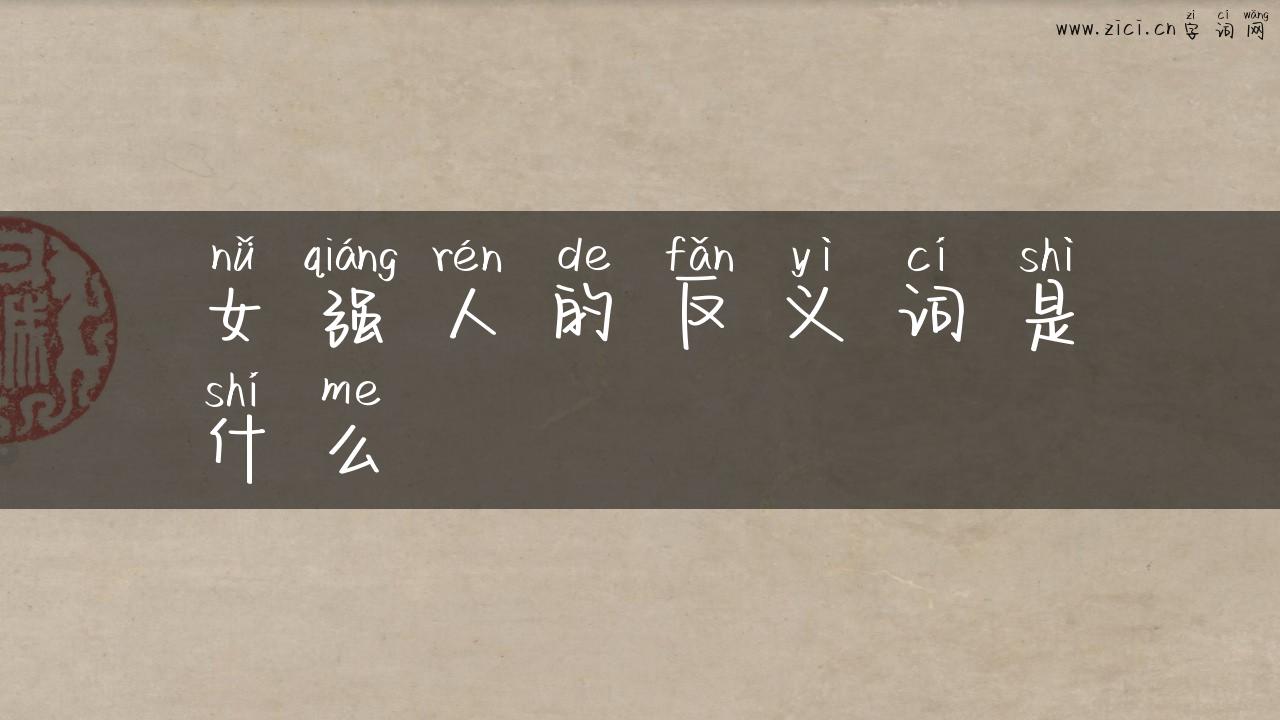 zì cí wǎng
www.zici.cn 字词网
nǚ qiáng rén de fǎn yì cí shì
女强人的反义词是
shí me
什么